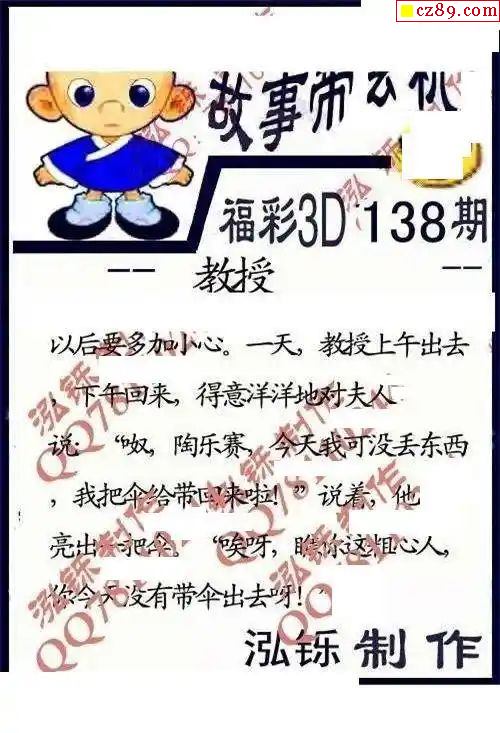 cz89.com
故事带玄机
福彩3D 138期
-- 教授 --
以后要多加小心。一天，教授上午出去
，下午回来，得意洋洋地对夫人
说：“呶，陶乐赛，今天我可没丢东西
，我把伞给带回来啦！”说着，他
亮出一把伞。“唉呀，瞧你这粗心人，
你今天没有带伞出去呀！”
泓铄 制作